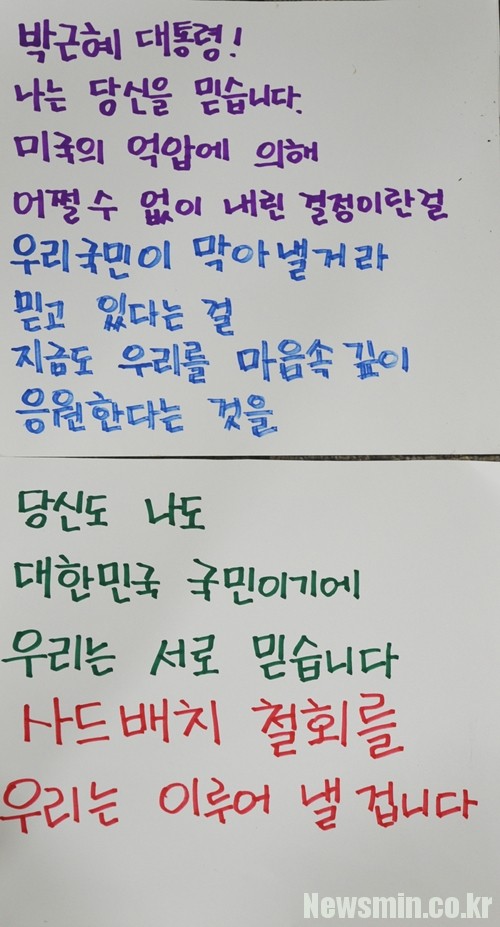 박근혜 대통령!
나는 당신을 믿습니다.
미국의 억압에 의해
어쩔수 없이 내린 결정이란걸
우리국민이 막아낼거라
믿고 있다는 걸
지금도 우리를 마음속 깊이
응원한다는 것을
당신도 나도
대한민국 국민이기에
우리는 서로 믿습니다
사드배치 철회를
우리는 이루어 낼 겁니다
Newsmin.co.kr